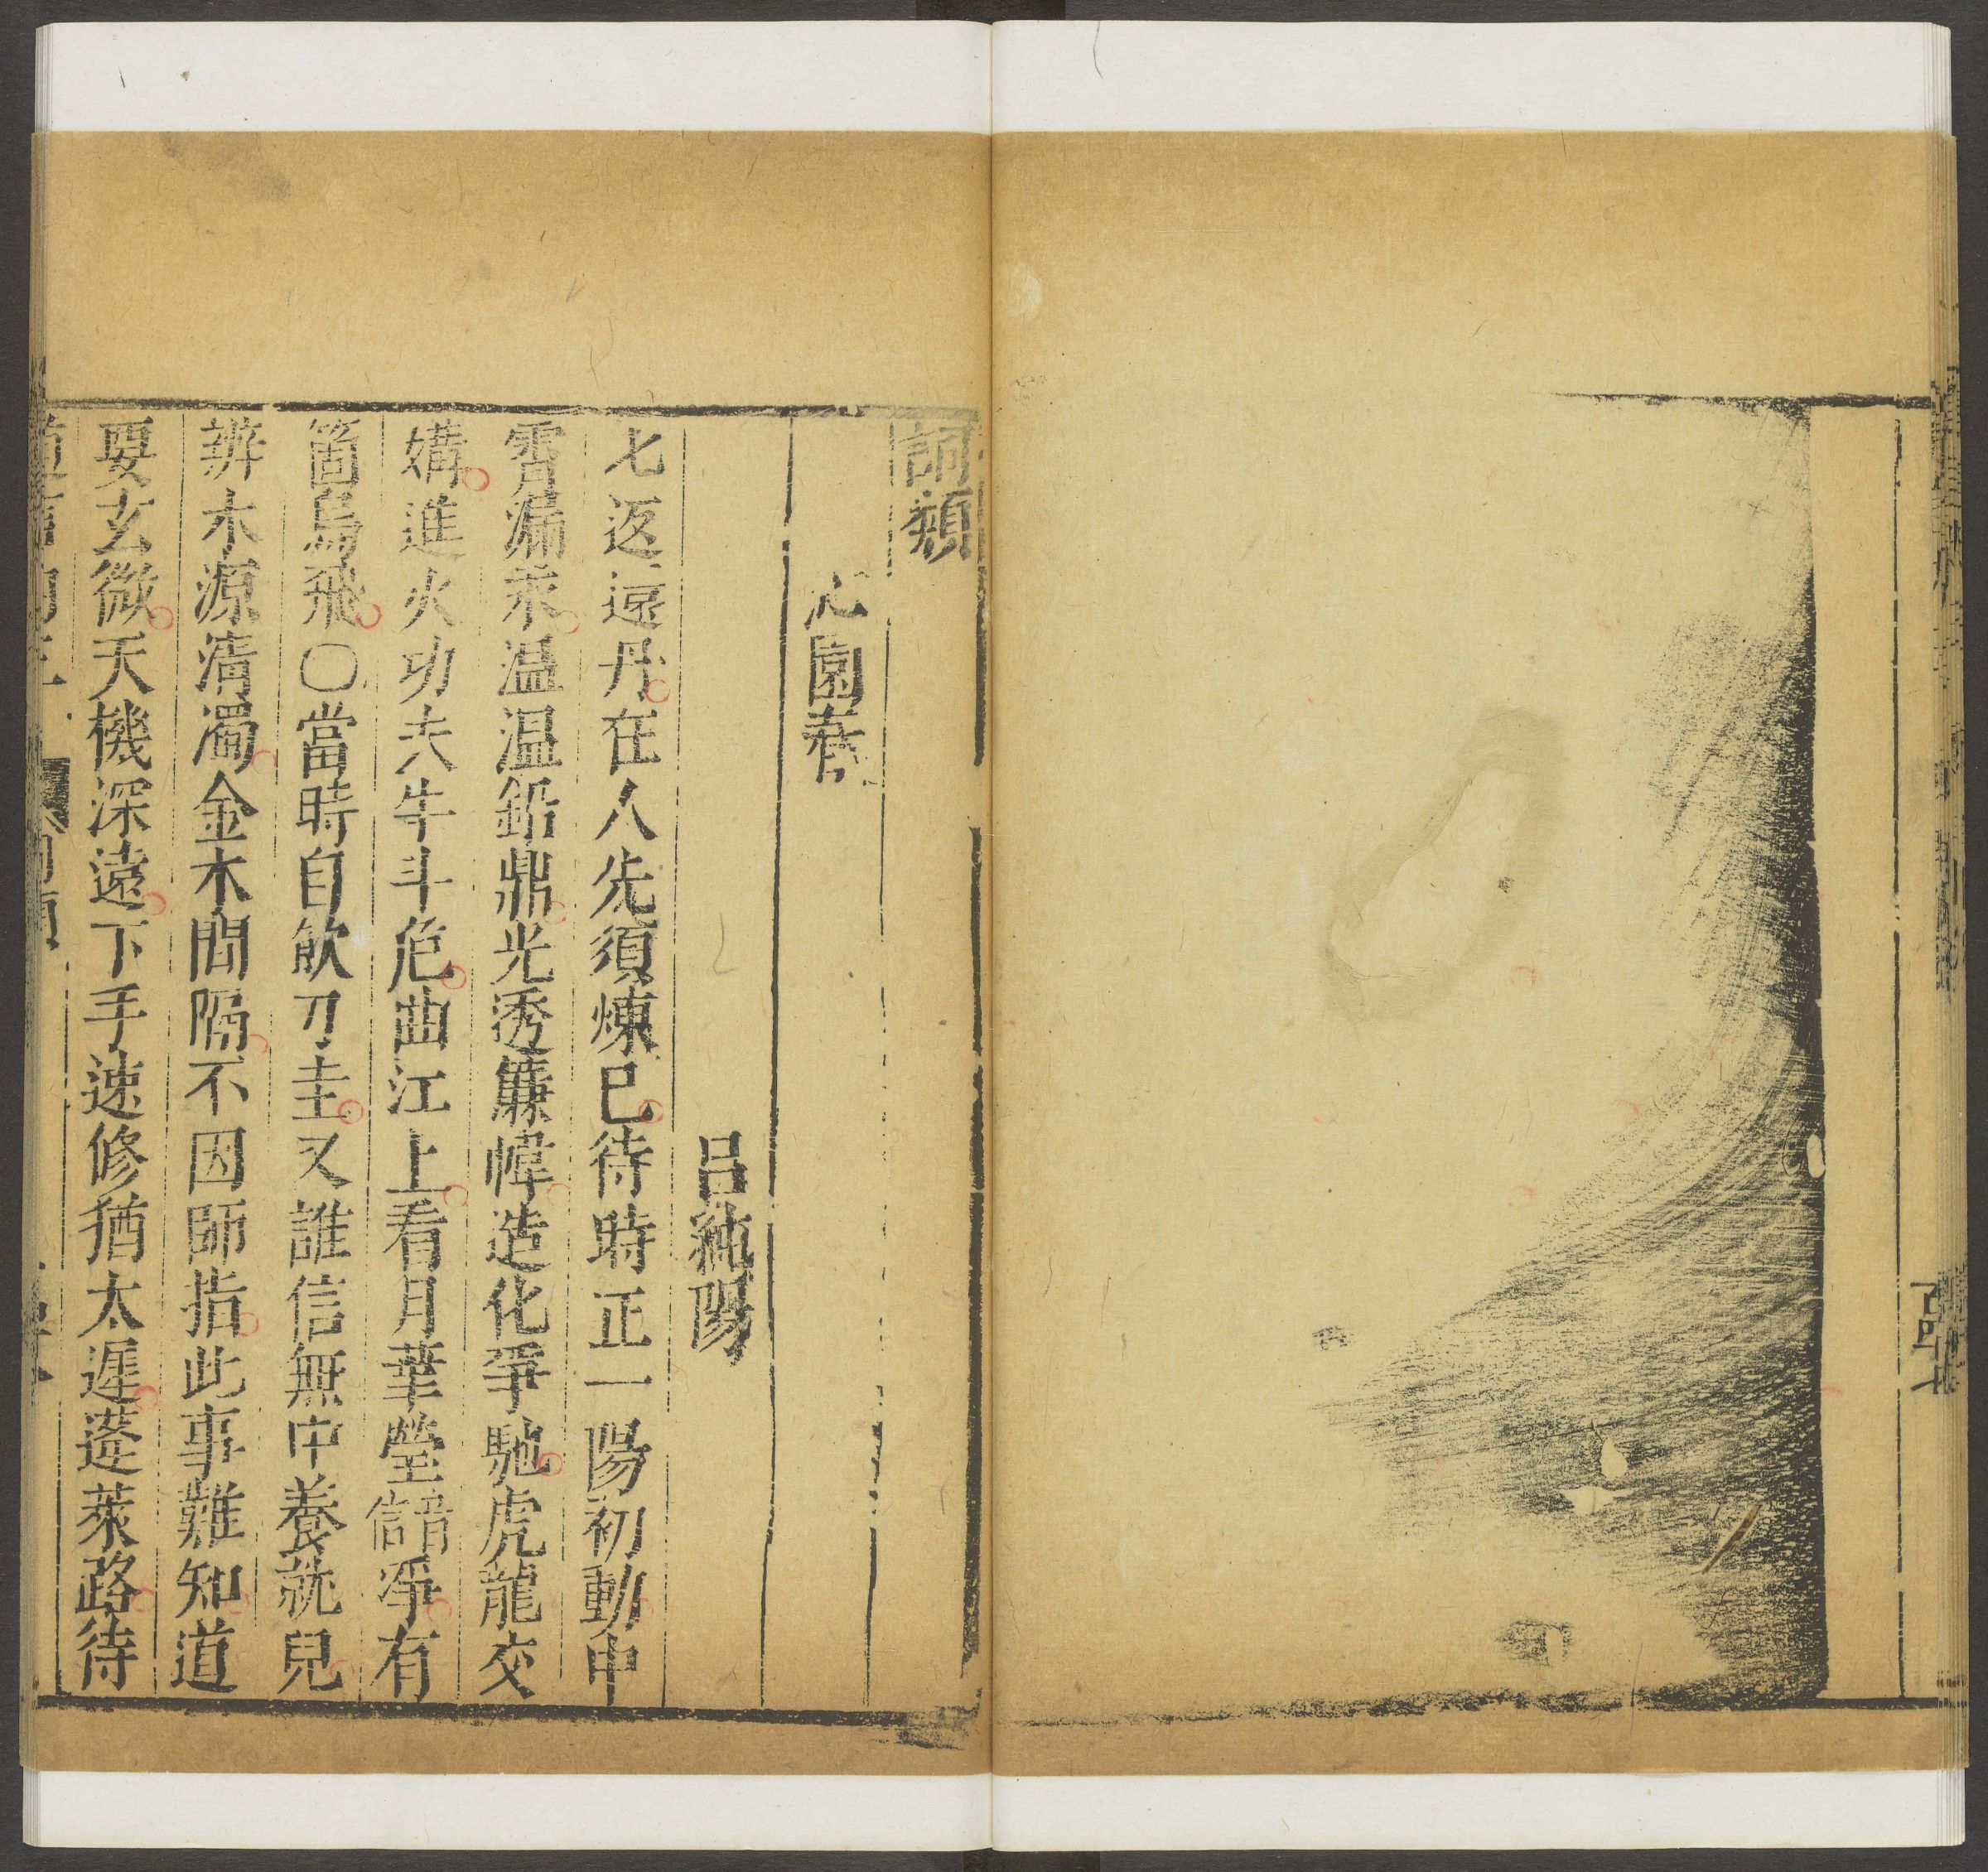 詞類
心園春
吕純陽
七返還丹在人先須煉已待時正一陽初動中
霄漏汞温温鉛鼎光透簾幃造化爭馳虎龍交
媾進火功夫牛斗危曲江上看月華瑩諳凈有
箇烏飛〇當時自飲刀圭又誰信無中養就兒
辨水源清濁金木間隔不因師指此事難知道
要玄微天機深遠下手速修猶太遲蓬萊路待